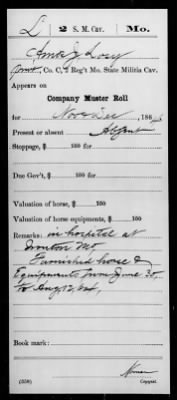 L 2 S. M. Cav. Mo.
Amos J. Losy
Privt, Co. C, 2 Reg't Mo. State Militia Cav.
Appears on
Company Muster Roll
for Nov & Dec, 186
Present or absent Absent
Stoppage, $ 100 for
Due Gov't, $ 100 for
Valuation of horse, $ 100
Valuation of horse equipments, $ 100
Remarks: in hospital at
Ironton Mo
Furnished horse &
Equipments from June 30
to Aug 12, 64,
Book mark:
(358) Copyist.